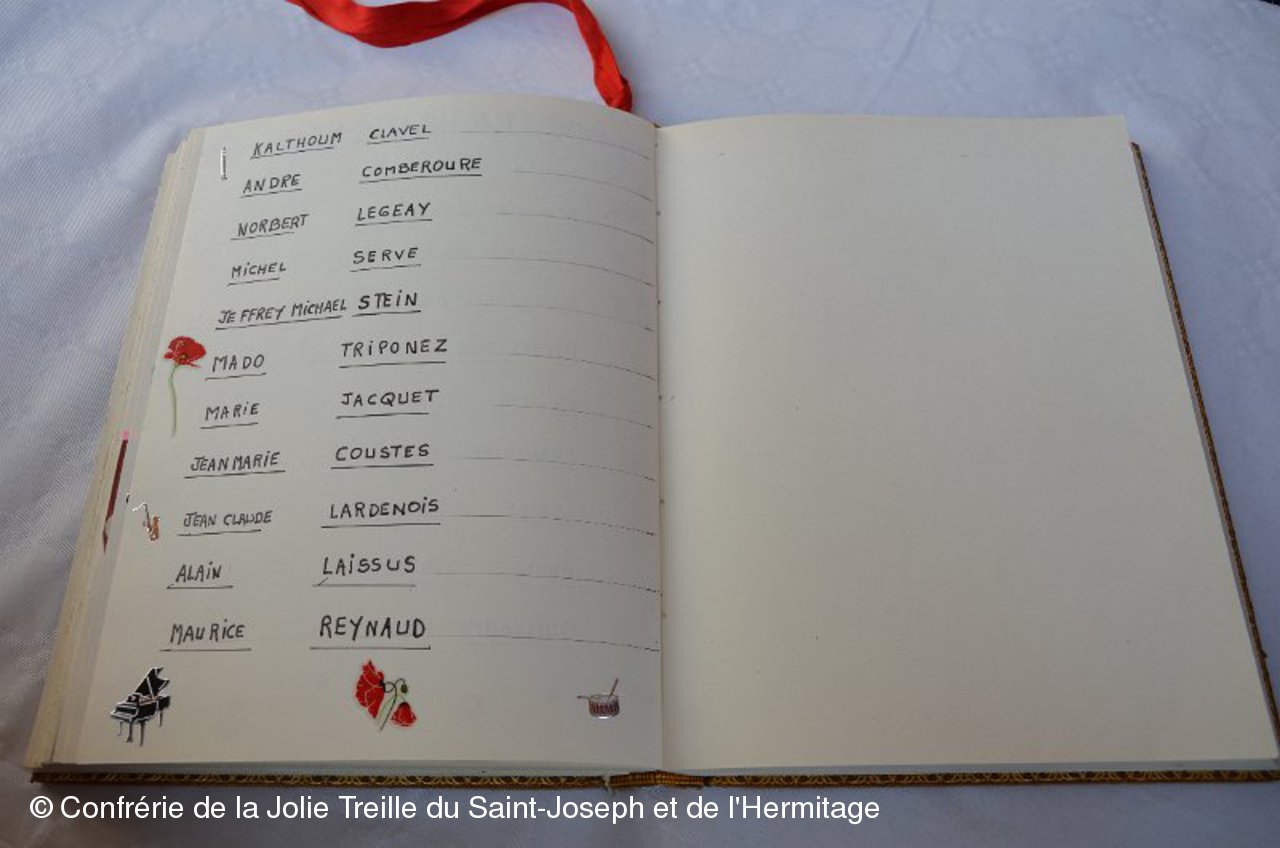 KALTHOUM CLAVEL
ANDRE COMBEROURE
NORBERT LEGEAY
MiCHEL SERVE
JEFFREY MiCHAEL STEiN
MADO TRiPONEZ
MARiE JACQUET
JEAN MARiE COUSTES
JEAN CLAUDE LARDENOiS
ALAiN LAiSSUS
MAURiCE REYNAUD
© Confrérie de la Jolie Treille du Saint-Joseph et de l'Hermitage